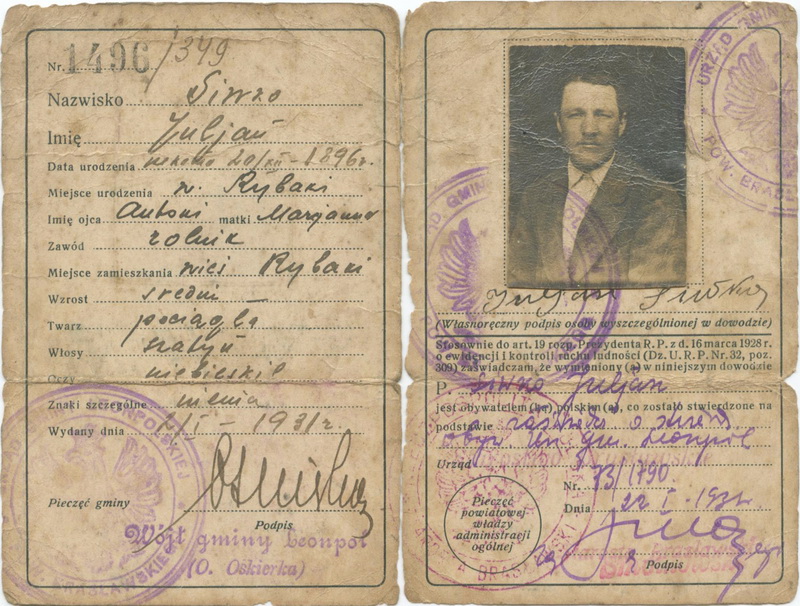 Nr. 1496/349
Nazwisko Siwko
Imię Juljan
Data urodzenia 20/XII-1896r.
Miejsce urodzenia w. Rybaki
Imię ojca Antoni matki Marjanna
Zawód rolnik
Miejsce zamieszkania wieś Rybaki
Wzrost średni
Twarz pociągła
Włosy szatyn
Oczy niebieskie
Znaki szczególne niema
Wydany dnia /I-1931r.
Pieczęć gminy
Podpis
Wójt gminy Leonpol
(O. Oskierka)
POLSKIEJ
BRASŁAWSKIEGO
URZĄD GMINY
POW. BRAS
Juljan Siwko
(Własnoręczny podpis osoby wyszczególnionej w dowodzie)
Stosownie do art. 19 rozp. Prezydenta R. P. z d. 16 marca 1928 r.
o ewidencji i kontroli ruchu ludności (Dz. U. R. P. Nr. 32, poz.
309) zaświadczam, że wymieniony (a) w niniejszym dowodzie
P Siwko Juljan
jest obywatelem (ką) polskim (ą), co zostało stwierdzone na
podstawie
obyw. gm. Leonpol
Urząd
Nr. 73/1790
Dnia 22 I. 1931r.
Pieczęć
powiatowej
władzy
administracji
ogólnej
Podpis